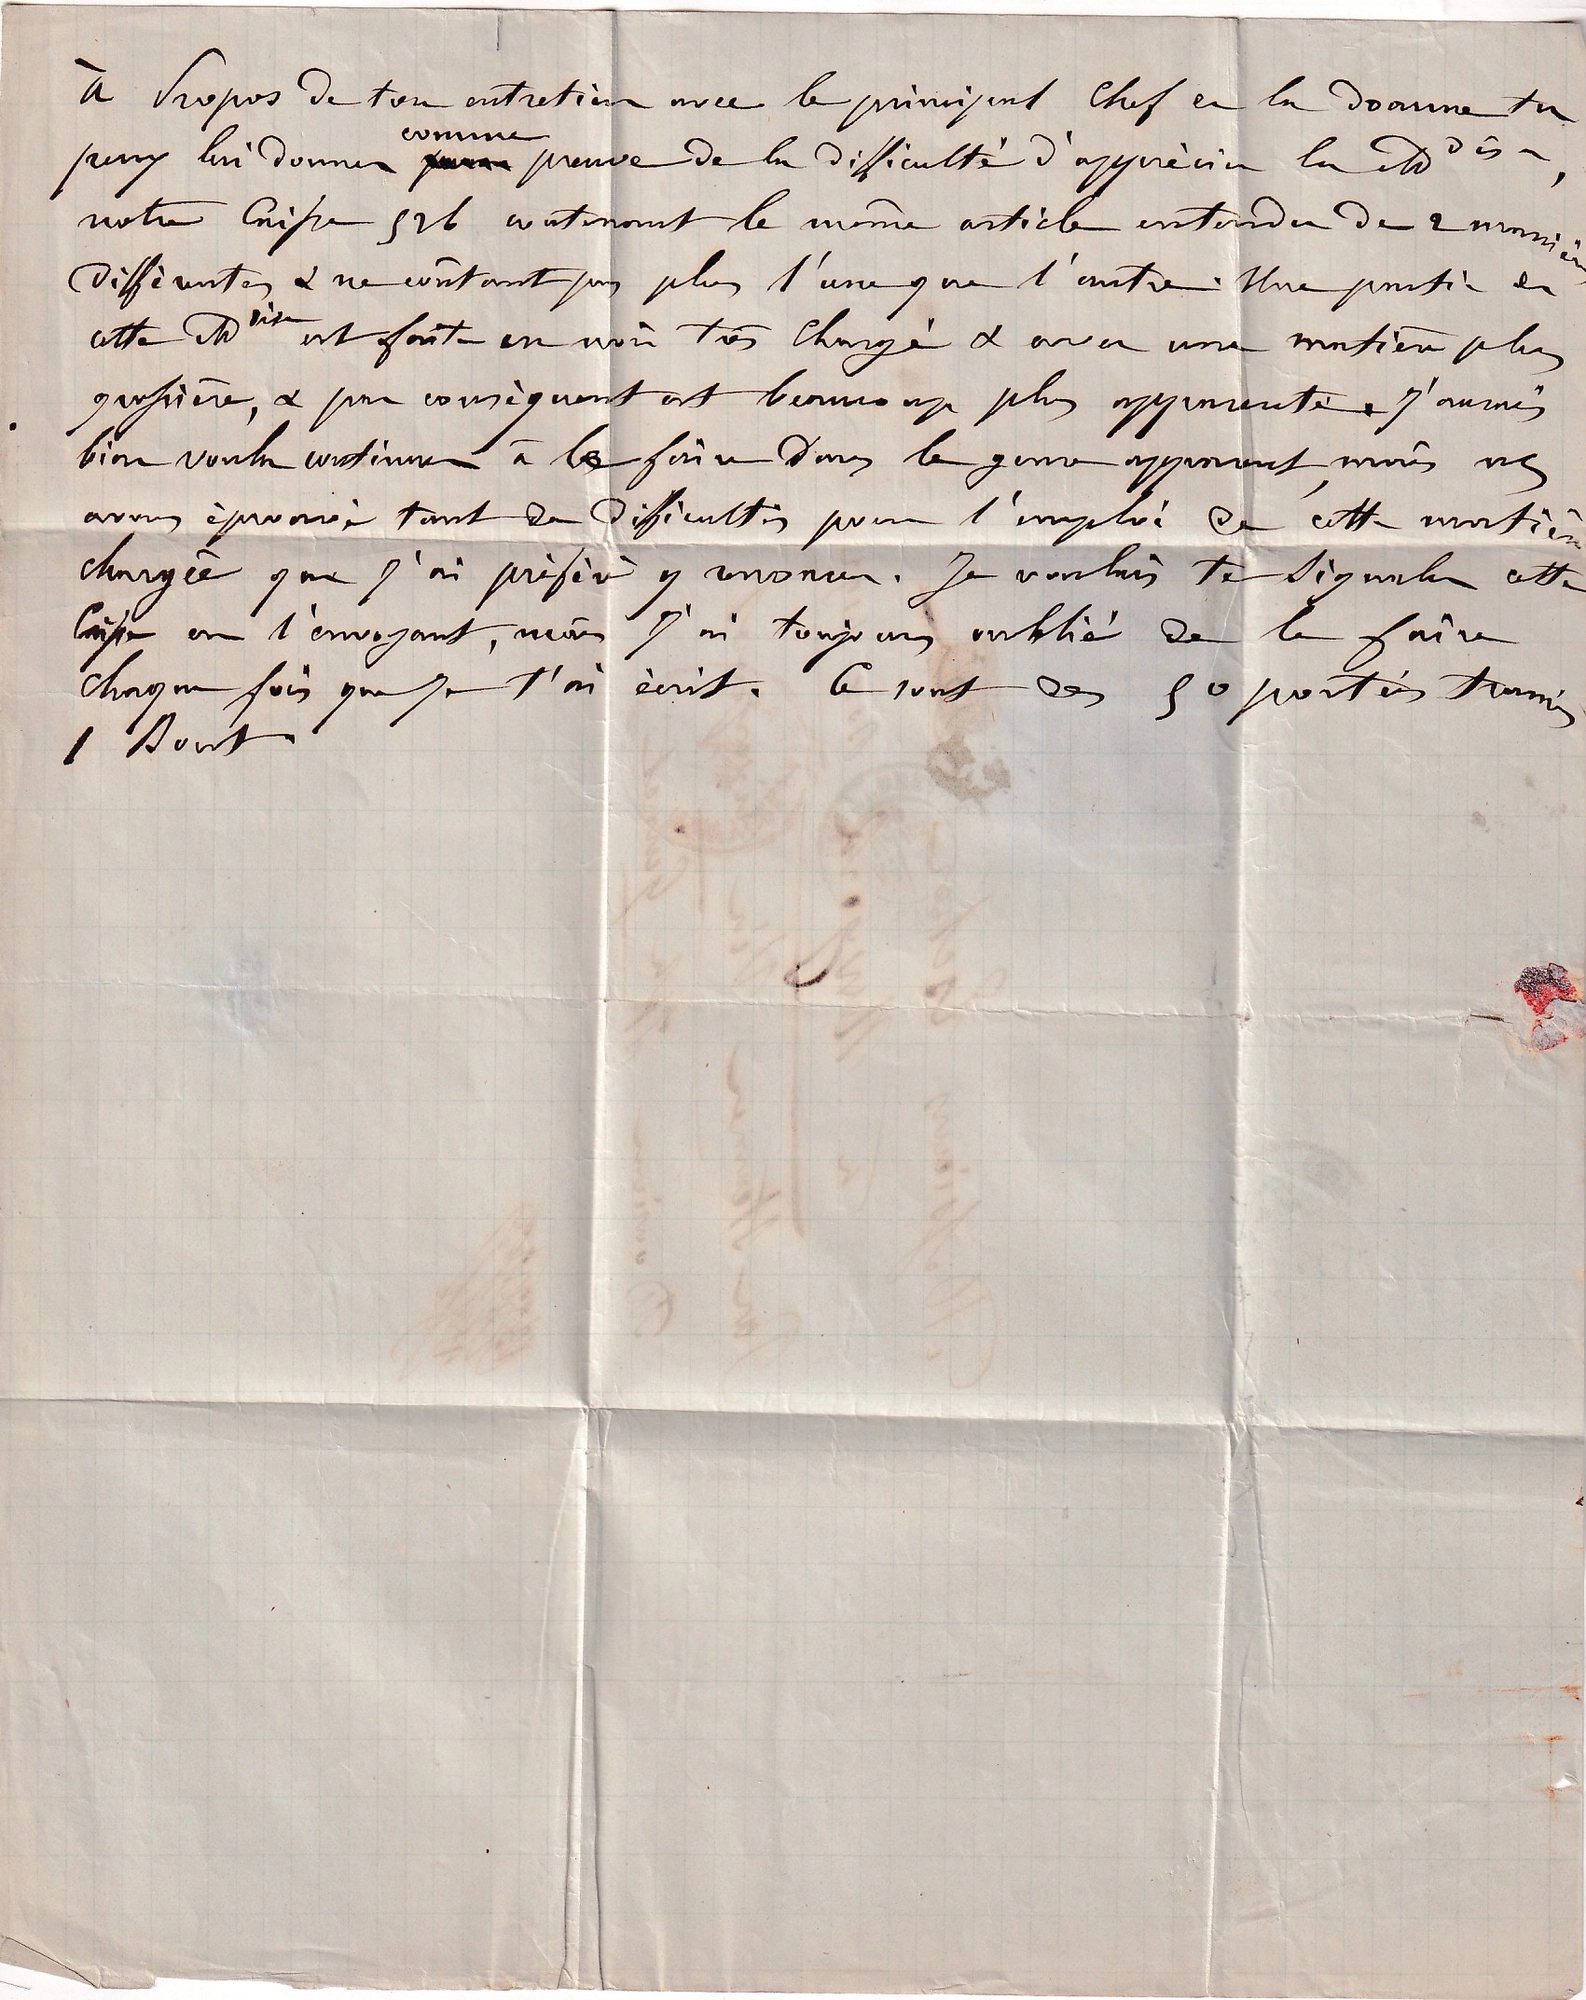 À Propos de ton entretien avec le principal Chef de la Douane tu
peux lui donner comme preuve de la difficulté d'apprécier la Mdise,
notre Caisse 526 contenant le même article entendu de 2 manières
différentes & ne coûtant pas plus l'une que l'autre. Une partie de
cette Mdise est faite en noir très chargé & avec une matière plus
grossière, & par conséquent est beaucoup plus apparente. J'aurais
bien voulu continuer à le faire dans le genre apparent, mais ns
avons éprouvé tant de difficultés pour l'emploi de cette matière
chargée que j'ai préféré y renoncer. Je voulais te signaler cette
Caisse en l'envoyant, mais j'ai toujours oublié de le faire
chaque fois que je t'ai écrit. Ce sont des 50 portées
1 Bout.